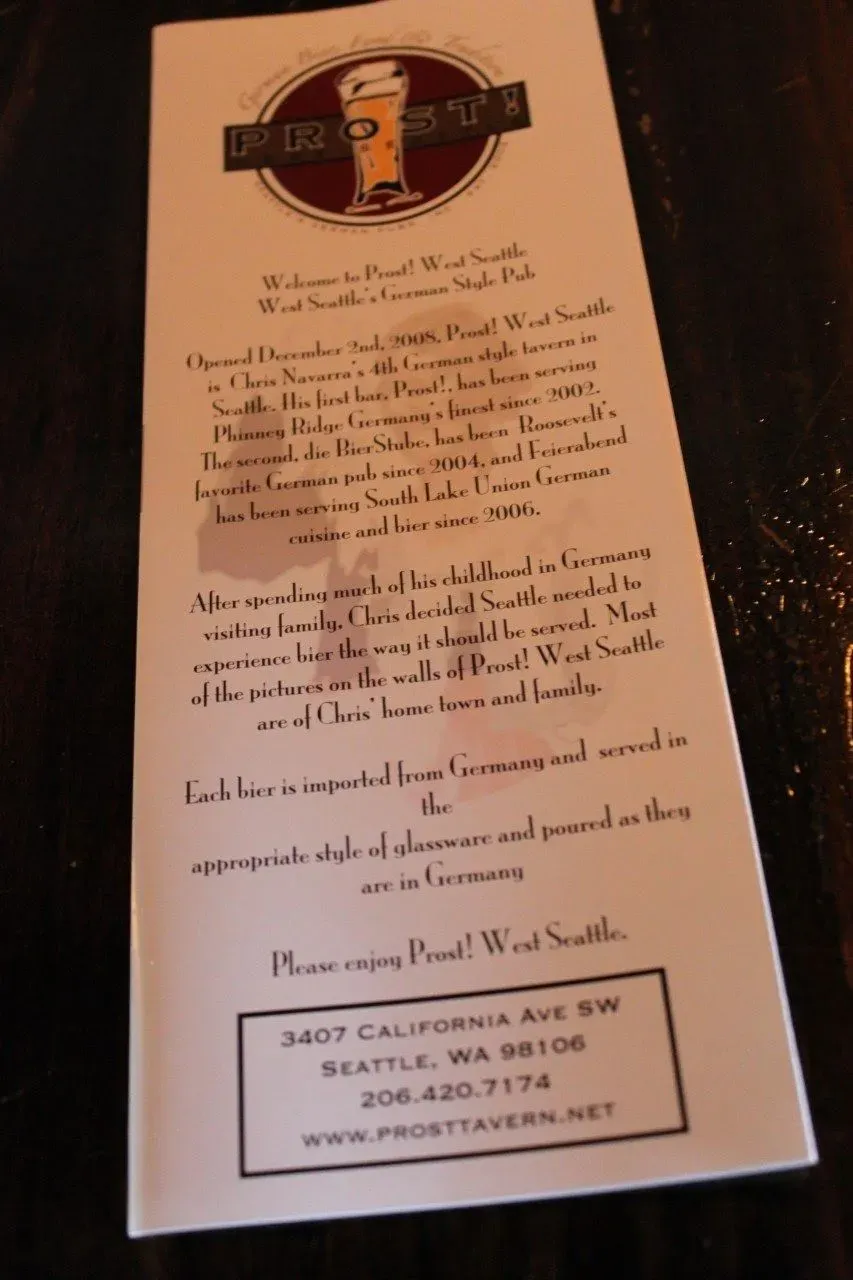 German Bier, Food and Tradition
PROST!
Welcome to Prost! West Seattle
West Seattle's German Style Pub
Opened December 2nd, 2008, Prost! West Seattle
is Chris Navarra's 4th German style tavern in
Seattle. His first bar, Prost!, has been serving
Phinney Ridge Germany's finest since 2002.
The second, die BierStube, has been Roosevelt's
favorite German pub since 2004, and Feierabend
has been serving South Lake Union German
cuisine and bier since 2006.
After spending much of his childhood in Germany
visiting family, Chris decided Seattle needed to
experience bier the way it should be served. Most
of the pictures on the walls of Prost! West Seattle
are of Chris' home town and family.
Each bier is imported from Germany and served in
the
appropriate style of glassware and poured as they
are in Germany
Please enjoy Prost! West Seattle.
3407 CALIFORNIA AVE SW
SEATTLE, WA 98106
206.420.7174
WWW.PROSTTAVERN.NET